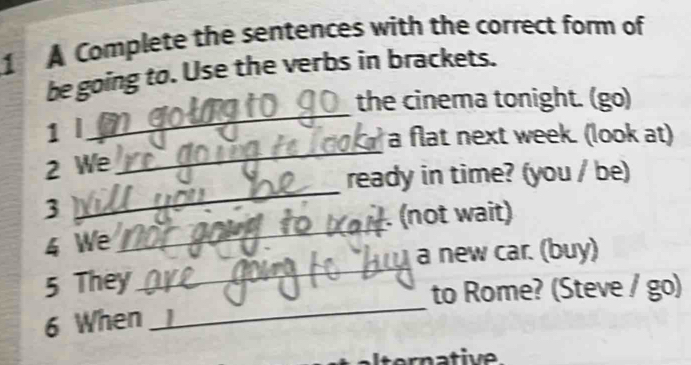 1 A Complete the sentences with the correct form of
be going to. Use the verbs in brackets.
1 I going to go the cinema tonight. (go)
2 We 're going to look at a flat next week. (look at)
3 Will you be ready in time? (you / be)
4 We 'not going to wait. (not wait)
5 They are going to buy a new car. (buy)
6 When I to Rome? (Steve / go)
alternative.